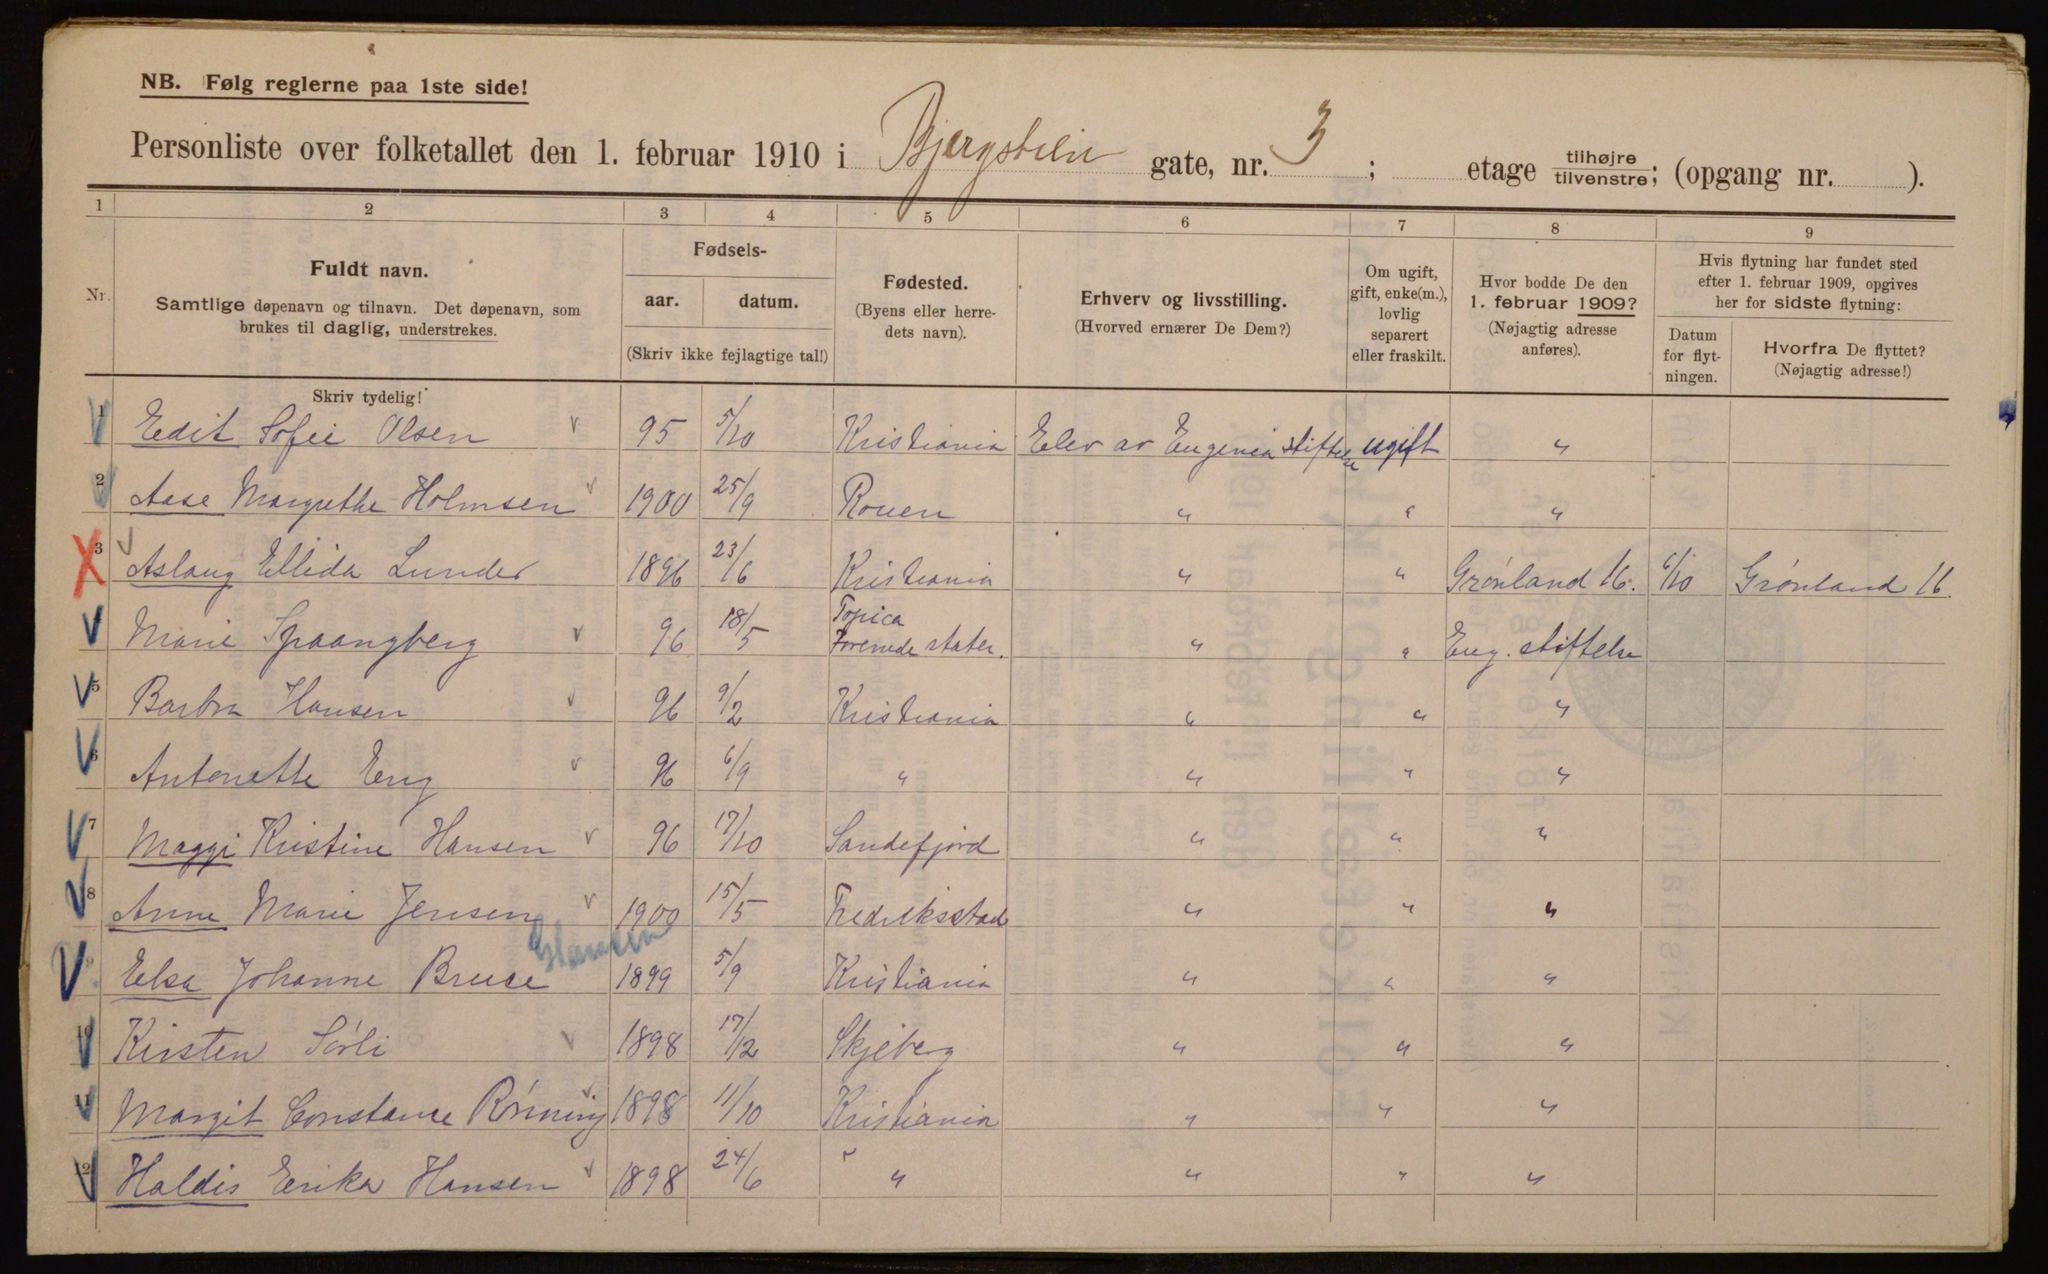 NB. Følg reglerne paa 1ste side!
Personliste over folketallet den 1. februar 1910 i Bjergstien gate, nr. 3; etage tilhøjre tilvenstre; (opgang nr. ).
1 2 3 4 5 6 7 8 9
Nr.
Fuldt navn.
Samtlige døpenavn og tilnavn. Det døpenavn, som
brukes til daglig, understrekes.
Skriv tydelig!
Fødsels-
aar. datum.
(Skriv ikke fejlagtige tal!)
Fødested.
(Byens eller herre-
dets navn).
Erhverv og livsstilling.
(Hvorved ernærer De Dem?)
Om ugift,
gift, enke(m.),
lovlig
separert
eller fraskilt.
Hvor bodde De den
1. februar 1909?
(Nøjagtig adresse
anføres).
Hvis flytning har fundet sted
efter 1. februar 1909, opgives
her for sidste flytning:
Datum
for flyt-
ningen.
Hvorfra De flyttet?
(Nøjagtig adresse!)
1 Edit Sofie Olsen 95 5/10 Kristiania Elev av Eugenia stiftelse ugift "
2 Aase Margrethe Holmsen 1900 25/9 Rouen " " "
3 Aslaug Ellida Lunder 1896 23/6 Kristiania " " Grønland 16. 6/10 Grønland 16.
Marie Spaangberg 96 18/5 Topica Forenede stater. " " Eug. stiftelse
5 Barbra Hansen 96 9/2 Kristiania " " "
6 Antonette Eng 96 6/9 " " " "
7 Maggi Kristine Hansen 96 17/10 Sandefjord " " "
8 Anne Marie Jensen 1900 15/5 Fredriksstad " " "
9 Elsa Johanne Bruce 1899 5/9 Kristiania " " "
10 Kirsten Sørli 1898 17/2 Skjeberg " " "
11 Margit Constance Rønning 1898 11/10 Kristiania " " "
12 Haldis Erika Hansen 1898 24/6 " " " "